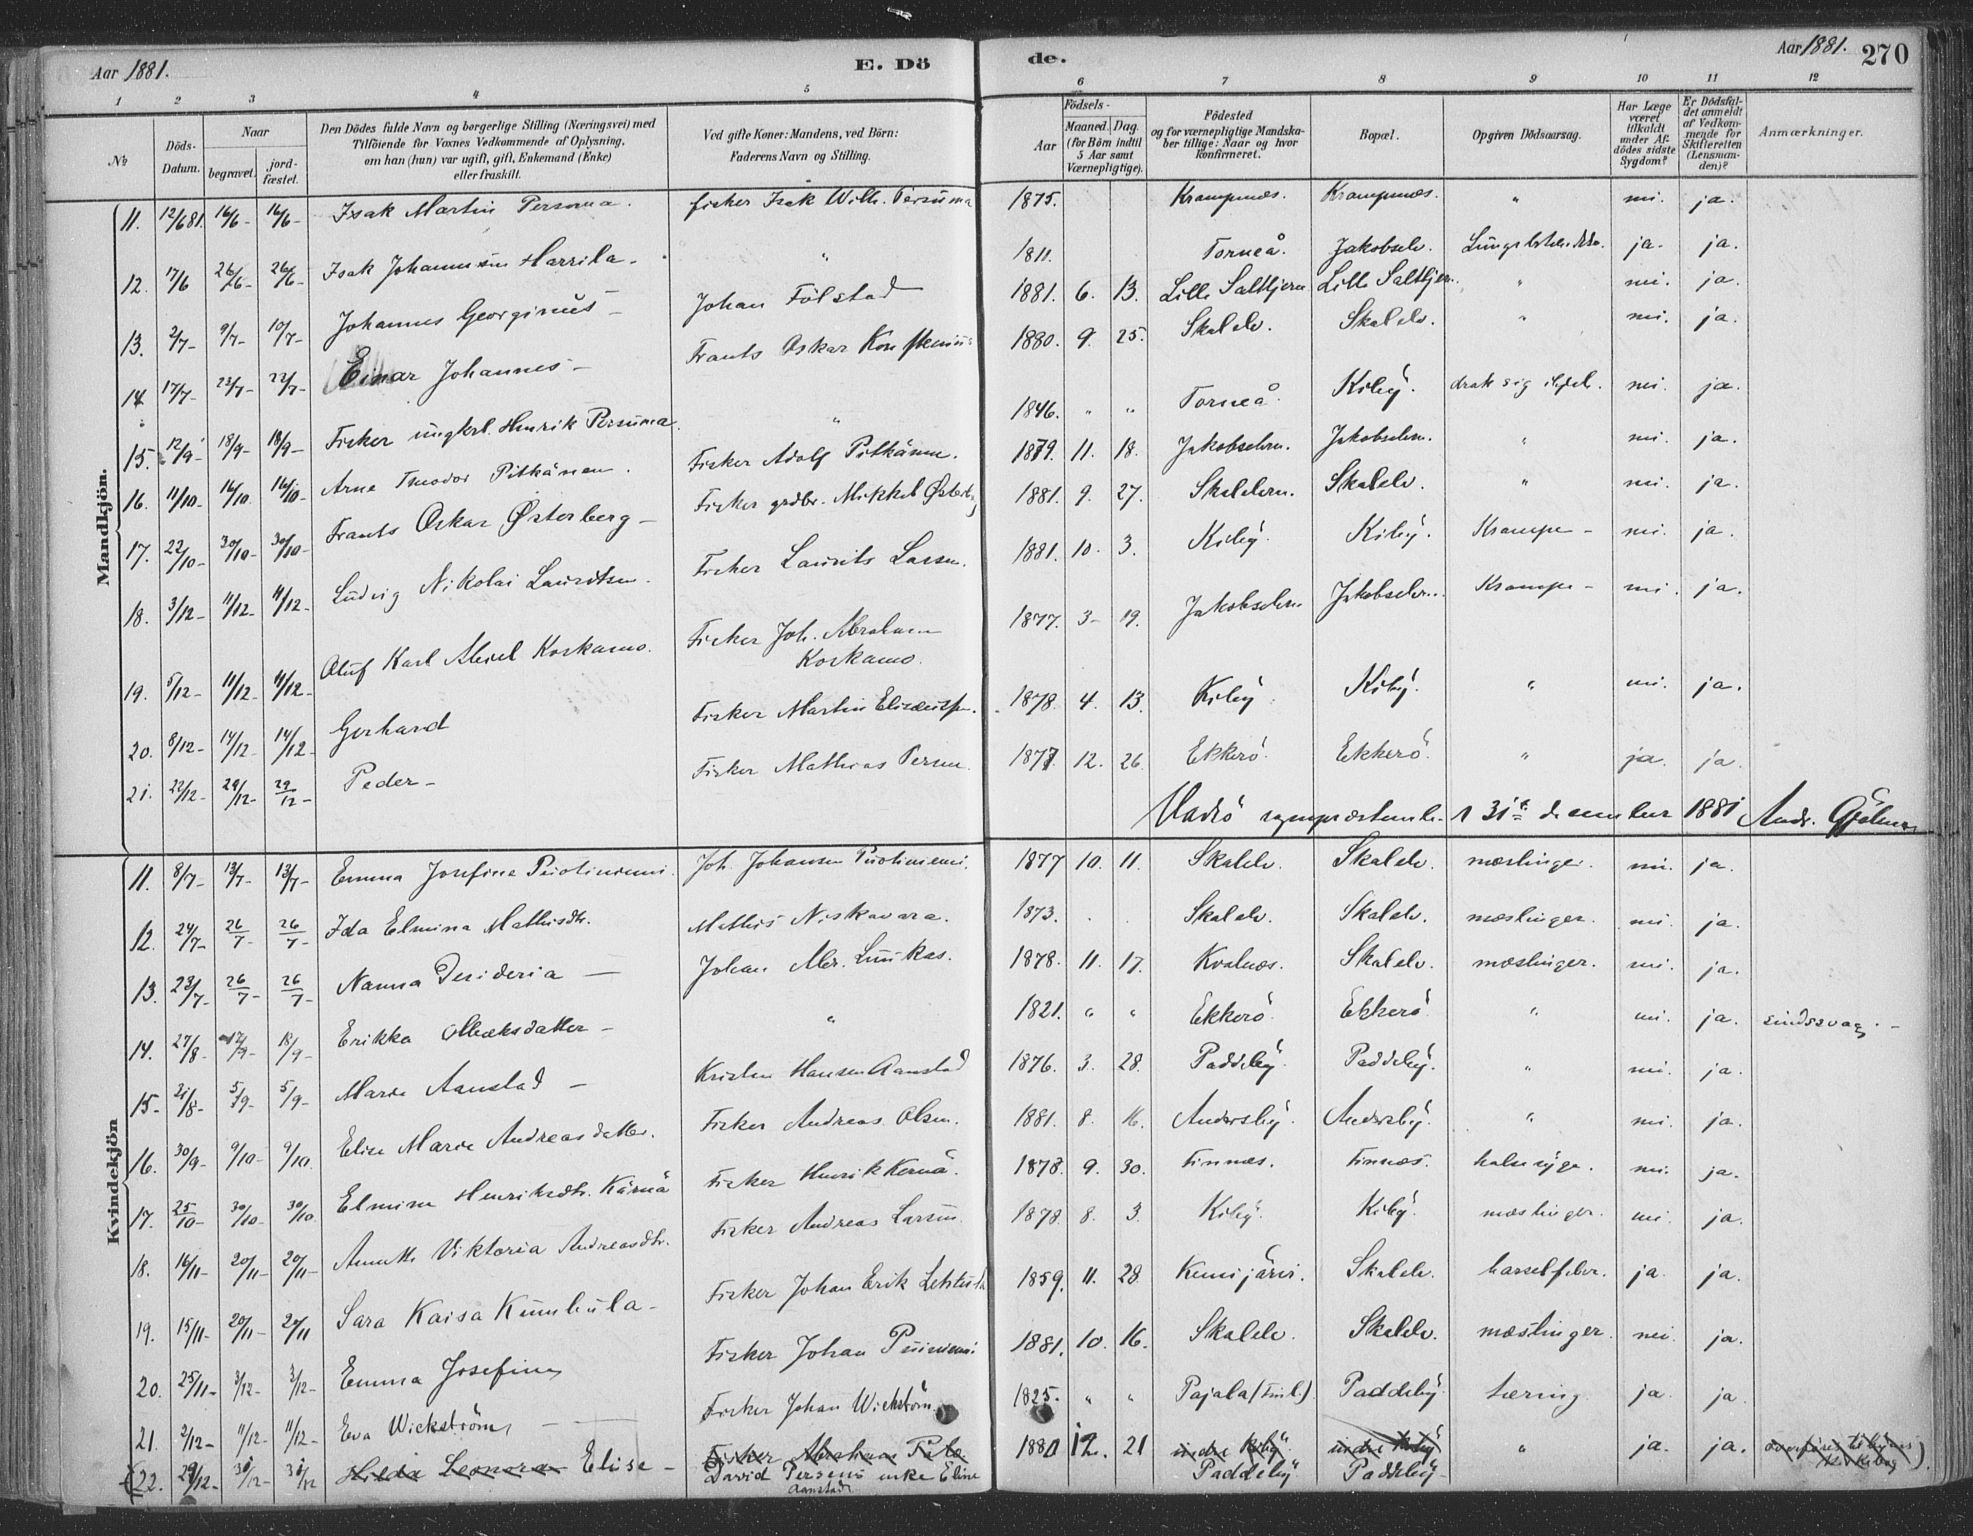 Aar 1881.
E. Dö
de.
Aar 1881.
270
1 2 3 4 5 6 7 8 9 10 11 12
№
Döds-Datum.
Naar
begravet.
jord-fæstet.
Den Dödes fulde Navn og borgerlige Stilling (Næringsvei) med
Tilföiende for Voxnes Vedkommende af Oplysning,
om han (hun) var ugift, gift, Enkemand (Enke)
eller fraskilt.
Ved gifte Koner: Mandens, ved Börn:
Faderens Navn og Stilling.
Födsels-
Aar
Maaned. Dag.
(for Börn indtil
5 Aar samt
Værnepligtige).
Födested
og for værnepligtige Mandska-
ber tillige: Naar og hvor
konfirmeret.
Bopæl.
Opgiven Dödsaarsag.
Har Læge
været
tilkaldt
under Af-
dödes sidste
Sygdom?
Er Dödsfal-
det anmeldt
af Vedkom-
mende for
Skifteretten
(Lensman-
den)?
Anmærkninger.
Mandkjön.
11. 12/6 81 16/6- 16/6- Isak Martin Persuma. fisker Isak Wilh. Persuma 1875. Krampenæs. Krampenæs. " nei. ja.
12. 17/6 26/6- 26/6- Isak Johannesen Harrila. " 1811. Torneå. Jakobselv. ja. ja.
13. 2/7- 9/7- 10/7- Johannes Georginus - Johan Fölstad 1881. 6. 13. Lille Saltkjern Lille Saltkjern. " nei. ja.
14 17/7- 23/7- 22/7- Einar Johannes - Frants Oskar 1880. 9. 25. Skalelv. Skalelv. " nei. ja.
15. 12/9- 18/9- 18/9- Fisker ungkrl. Henrik Persuma. " 1846. " " Torneå. Kiby. drak sig nei. ja.
16. 11/10- 16/10- 16/10- Arne Theodor Pitkänen. Fisker Adolf Pitkänen. 1879. 11. 18. Jakobselven. Jakobselven. " nei. ja.
17. 22/10- 30/10- 30/10- Frants Oskar Østerberg - Fisker grdbr. Mikkel Østerberg 1881. 9. 27. Skalelven. Skalelv. " nei. ja.
18. 3/12- 11/12- 11/12- Ludvig Nikolai Lauritsen. Fisker Laurits Larsen. 1881. 10. 3. Kiby. Kiby. Krampe - nei. ja.
19. 5/12- 11/12- 11/12- Oluf Karl Abiel Koskamo. Fisker Joh. Abraham Koskamo. 1877. 3- 19. Jakobselven Jakobselven. Krampe - nei. ja.
20. 8/12- 14/12- 14/12- Gerhard Fisker Martin 1878. 4. 13. Kiby. Kiby. " nei. ja.
21. 22/12- 29/12- 29/12- Peder - Fisker Mathias Persen 1877. 12. 26. Ekkerö. Ekkerö. " ja. ja.
Vadsö sognepræstembede 31te desember 1881 Andr. Gjölme
Kvindekjön
11. 8/7- 13/7- 13/7- Emma Josefine Puotiniemi. Joh. Johansen Puotiniemi. 1877 10. 11. Skalelv. Skalelv. mæslinger. nei. ja.
12. 24/7- 26/7- 26/7- Ida Elmina Mathisdtr. Mathis Niskavara. 1873. . . Skalelv. Skalelv. mæslinger. nei. ja.
13. 23/7- 26/7- 26/7- Nanna Desideria - Johan Abr. Luukas. 1878. 11. 17. Kvalnæs. Skalelv. mæslinger. nei. ja.
14. 27/8- 17/9- 18/9- Erikka - " 1821. " " Ekkerö. Ekkerö. " nei. ja. sindssvag. -
15- 21/8- 5/9- 5/9- Marie Aanstad - Kristen Hansen Aanstad 1876. 3. 28. Paddeby. Paddeby. " nei. ja.
16. 30/9- 9/10- 9/10. Elise Marie Andreasdatter. Fisker Andreas Olsen. 1881. 8. 16. Andersby. Andersby. " nei. ja.
17. 25/10- 30/10- 30/10 Elmine Henriksdtr. Kärnä Fisker Henrik Kernä. 1878. 9. 30. Finnæs. Finnæs. halssyge. nei. ja.
18. 16/11- 20/11- 20/11- Anette Viktoria Andreasdtr. Fisker Andreas Larsen. 1878. 8. 3. Kiby. Kiby. mæslinger. nei. ja.
19. 15/11- 20/11- 20/11 Sara Kaisa Kumbula - Fisker Johan Erik 1859. 11. 28. Kemijärvi. Skalelv. barselfeber. ja. ja.
20. 25/11- 3/12- 3/12- Emma Josefine Fisker Johan 1881. 10. 16. Skalelv. Skalelv. mæslinger. nei. ja.
21. 2/12- 11/12- 11/12- Eva Wickström - Fisker Johan Wickström 1825. " " Pajala (Finl.). Paddeby. tæring ja. ja.
(22. 29/12- 31/12- 31/12 Hilda Leonora Elise - Fisker Abraham Palo 1880 12. 21 indre Kiby. indre Kiby " ja. ja.
David Persens enke Eline Paddeby Paddeby-
Aanstad